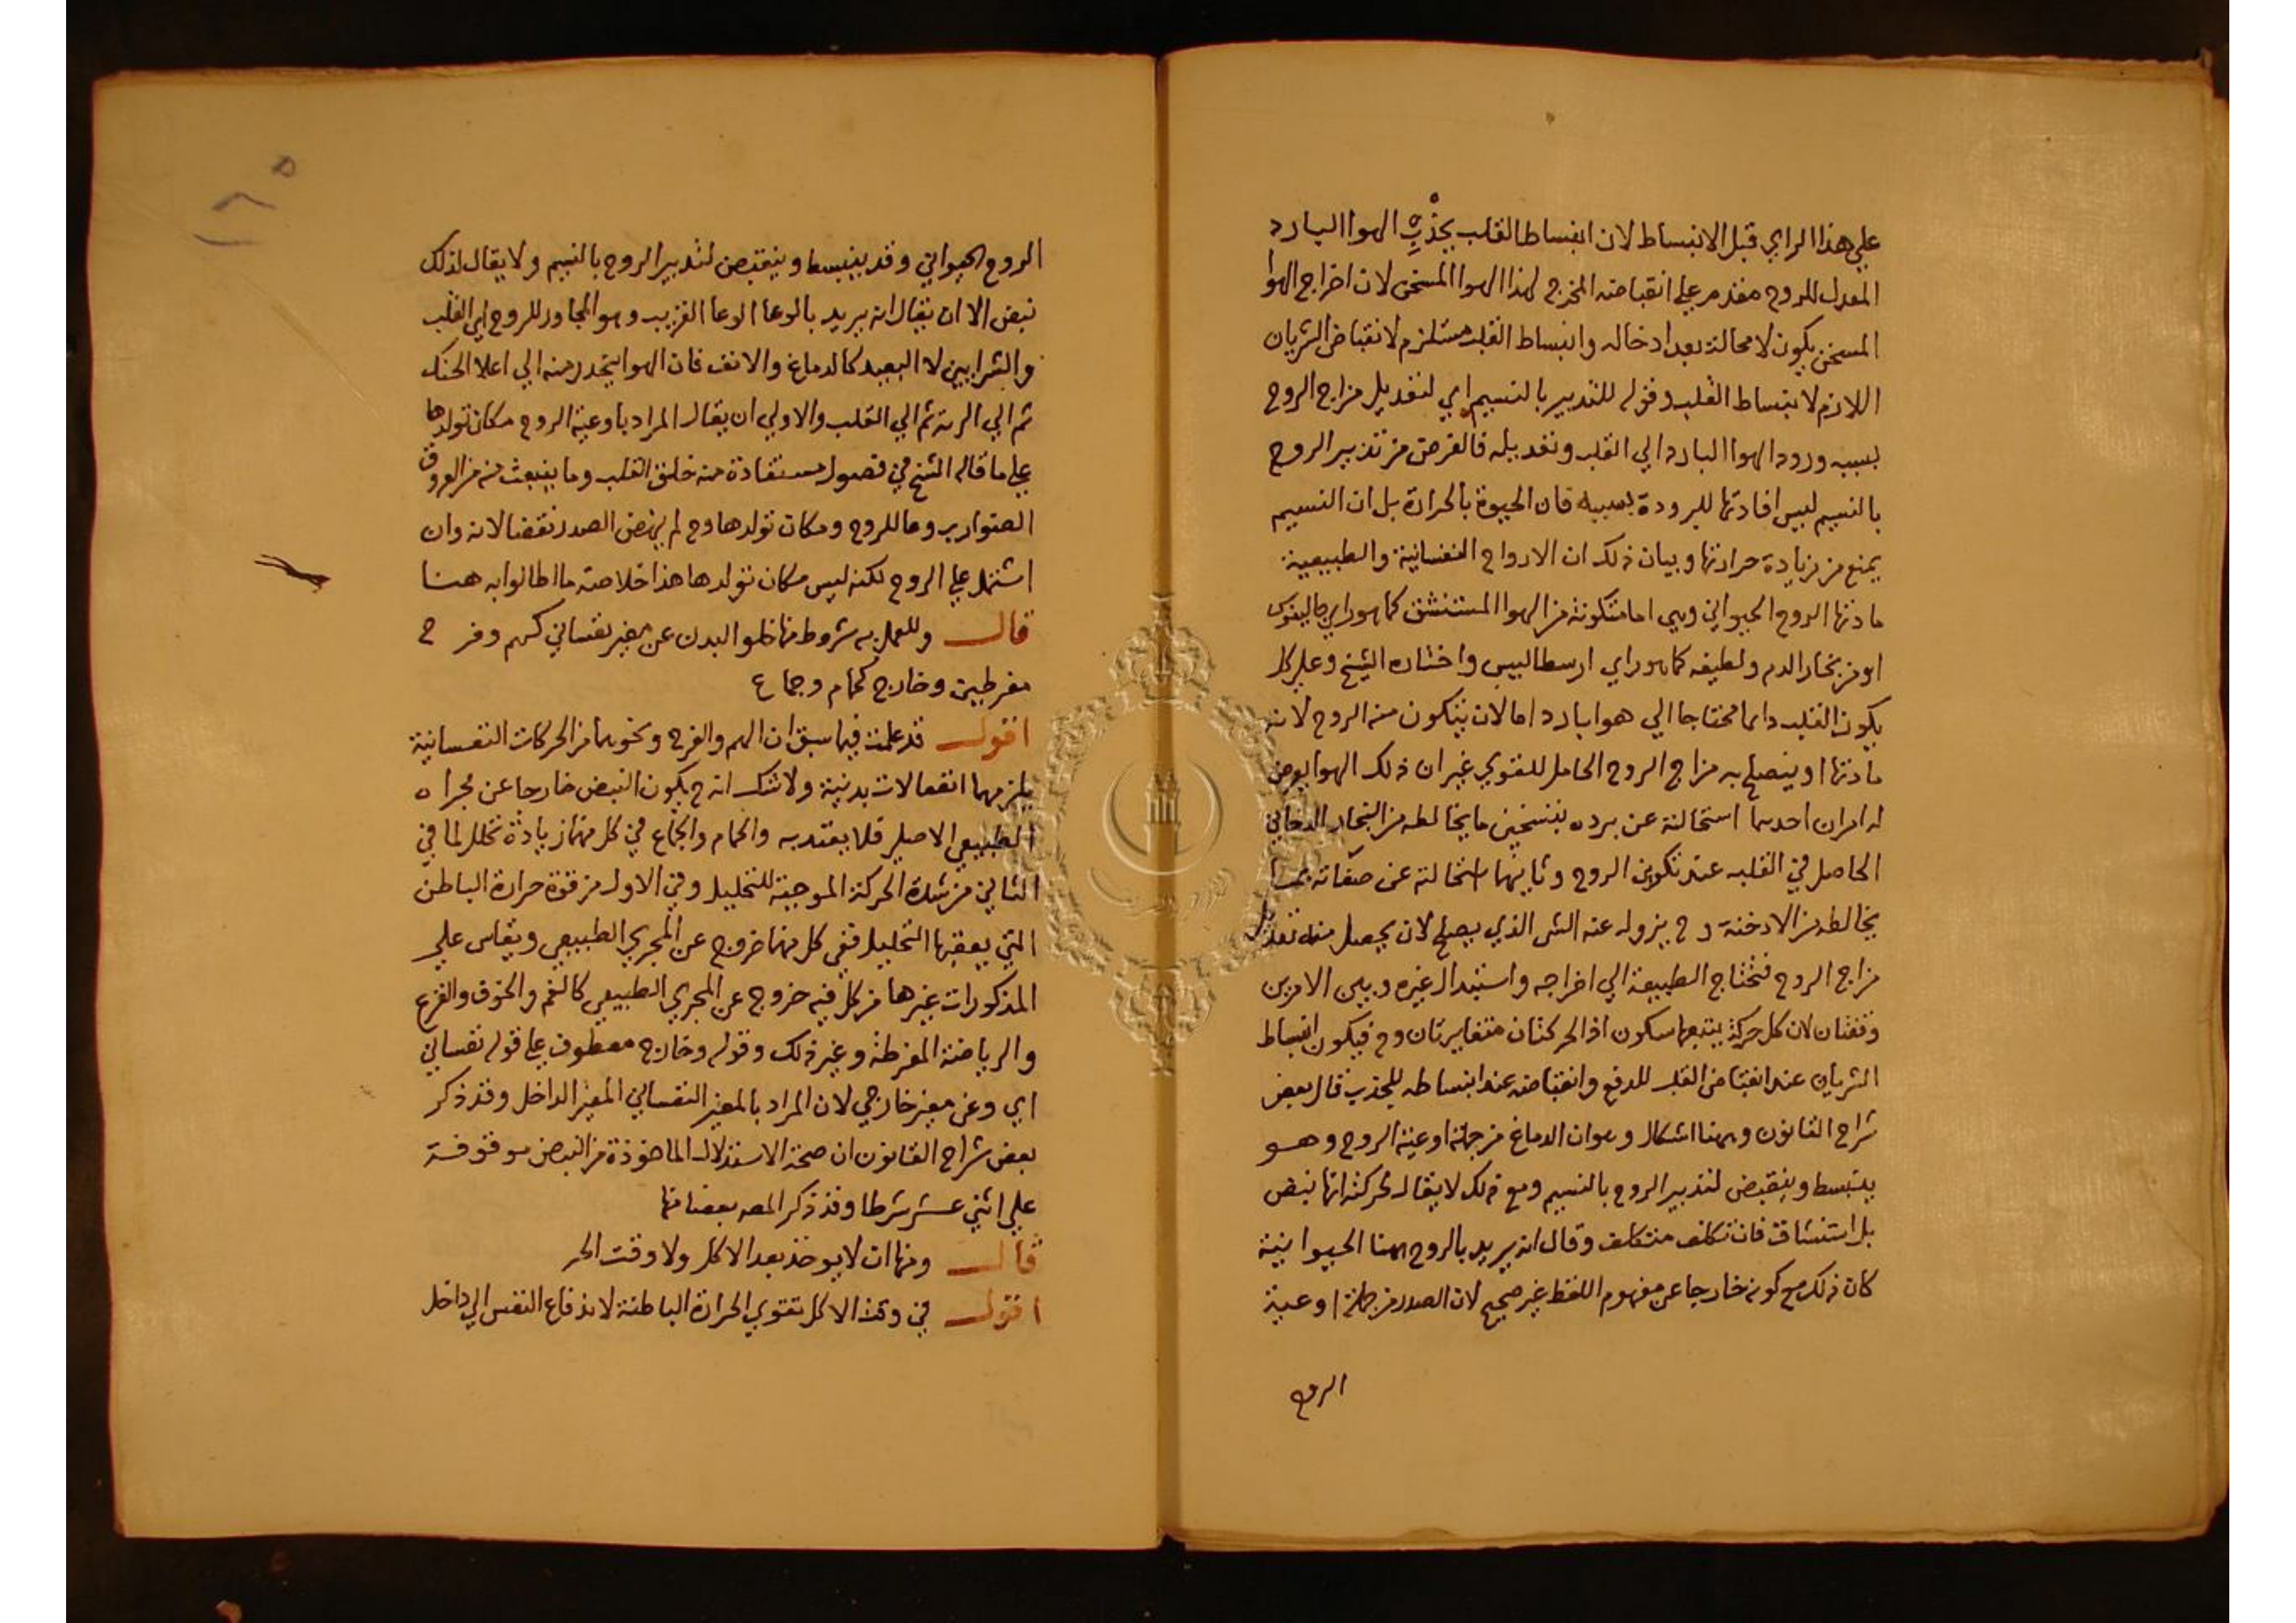 علي هذا الراي قبل الانبساط لان انبساط القلب بجذبه الهوا البارد
المعدل للروح مقدم علي انقباضه المخرج لهذا الهوا المسخن لان اخراج الهوا
المسخن يكون لا محالة بعد ادخاله وانبساط القلب مستلزم لانقباض الشريان
اللازم لانبساط القلب وقوله للتدبير بالنسيم اي لتعديل مزاج الروح
بسبب ورود الهوا البارد الي القلب وتعديله فالغرض من تدبير الروح
بالنسيم ليس افادتها للبرودة بسببه فان الحيوة بالحرارة بل ان النسيم
يمنع من زيادة حرارتها وبيان ذلك ان الارواح النفسانية والطبيعية
مادتها الروح الحيواني وهي اما متكونة من الهوا المستنشق كما هو راي جالينوس
او من بخار الدم ولطيفه كما هو راي ارسطاليس واختاره الشيخ وعلي كل
يكون القلب دايما محتاجا الي هوا بارد اما لان يتكون منه الروح لانه
مادتها او ينصلح به مزاج الروح الحامل للقوي غير ان ذلك الهوا يعرض
له امران احدهما استحالته عن برده بتسخين ما يخالطه من البخار الدخاني
الحاصل في القلب عند تكوين الروح وثانيهما استحالته عن صفائه بما
يخالطه من الادخنة وح يزول عنه الشي الذي يصلح لان يحصل منه تعديل
مزاج الروح فتحتاج الطبيعة الي اخراجه واستبدال غيره وبين الامرين
وقفتان لان كل حركة يتبعها سكون اذ الحركتان متغايرتان وح فيكون انبساط
الشريان عند انقباض القلب للدفع وانقباضه عند انبساطه للجذب قال بعض
شراح القانون وههنا اشكال وهو ان الدماغ من جملة اوعية الروح وهو
ينبسط وينقبض لتدبير الروح بالنسيم ومع ذلك لا يقال لحركته انها نبض
بل استنشاق فان تكلف متكلف وقال انه يريد بالروح ههنا الحيوانية
كان ذلك مع كونه خارجا عن مفهوم اللفظ غير صحيح لان الصدر من جملة اوعية
الروح
الروح الحيواني وقد ينبسط وينقبض لتدبير الروح بالنسيم ولا يقال لذلك
نبض الا ان يقال انه يريد بالوعا الوعا القريب وهو المجاور للروح اي القلب
والشرايين لا البعيد كالدماغ والانف فان الهوا ينحدر منه الي اعلا الحنك
ثم الي الرية ثم الي القلب والاولي ان يقال المراد باوعية الروح مكان تولدها
علي ما قاله الشيخ في فصول مستفادة منه خلق القلب وما ينبعث منه من العروق
الضوارب وعا للروح ومكان تولدها وح لم ينهض الصدر نقضا لانه وان
اشتمل علي الروح لكنه ليس مكان تولدها هذا خلاصة ما اطالوا به هنا
قال وللعمل به شروط منها خلو البدن عن مغير نفساني كهم وفرح
مفرطين وخارج كحمام وجماع
اقول قد علمت فيما سبق ان الهم والفرح ونحوهما من الحركات النفسانية
يلزمهما انفعالات بدنية ولا شك انه ح يكون النبض خارجا عن مجراه
الطبيعي الاصلي فلا يعتد به والحمام والجماع في كل منهما زيادة تحلل لما في
الثاني من شدة الحركة الموجبة للتحليل وفي الاول من قوة حرارة الباطن
التي يعقبها التحليل ففي كل منهما خروج عن المجري الطبيعي ويقاس علي
المذكورات غيرها من كل فيه خروج عن المجري الطبيعي كالغم والخوف والفزع
والرياضة المفرطة وغير ذلك وقوله وخارج معطوف علي قوله نفساني
اي وعن مغير خارجي لان المراد بالمغير النفساني المغير الداخل وقد ذكر
بعض شراح القانون ان صحة الاستدلال الماخوذة من النبض موقوفة
علي اثني عشر شرطا وقد ذكر المصه بعضا منها
قال ومنها ان لا يوخذ بعد الاكل ولا وقت الحر
اقول في وقت الاكل تقوي الحرارة الباطنة لاندفاع النفس الي داخل